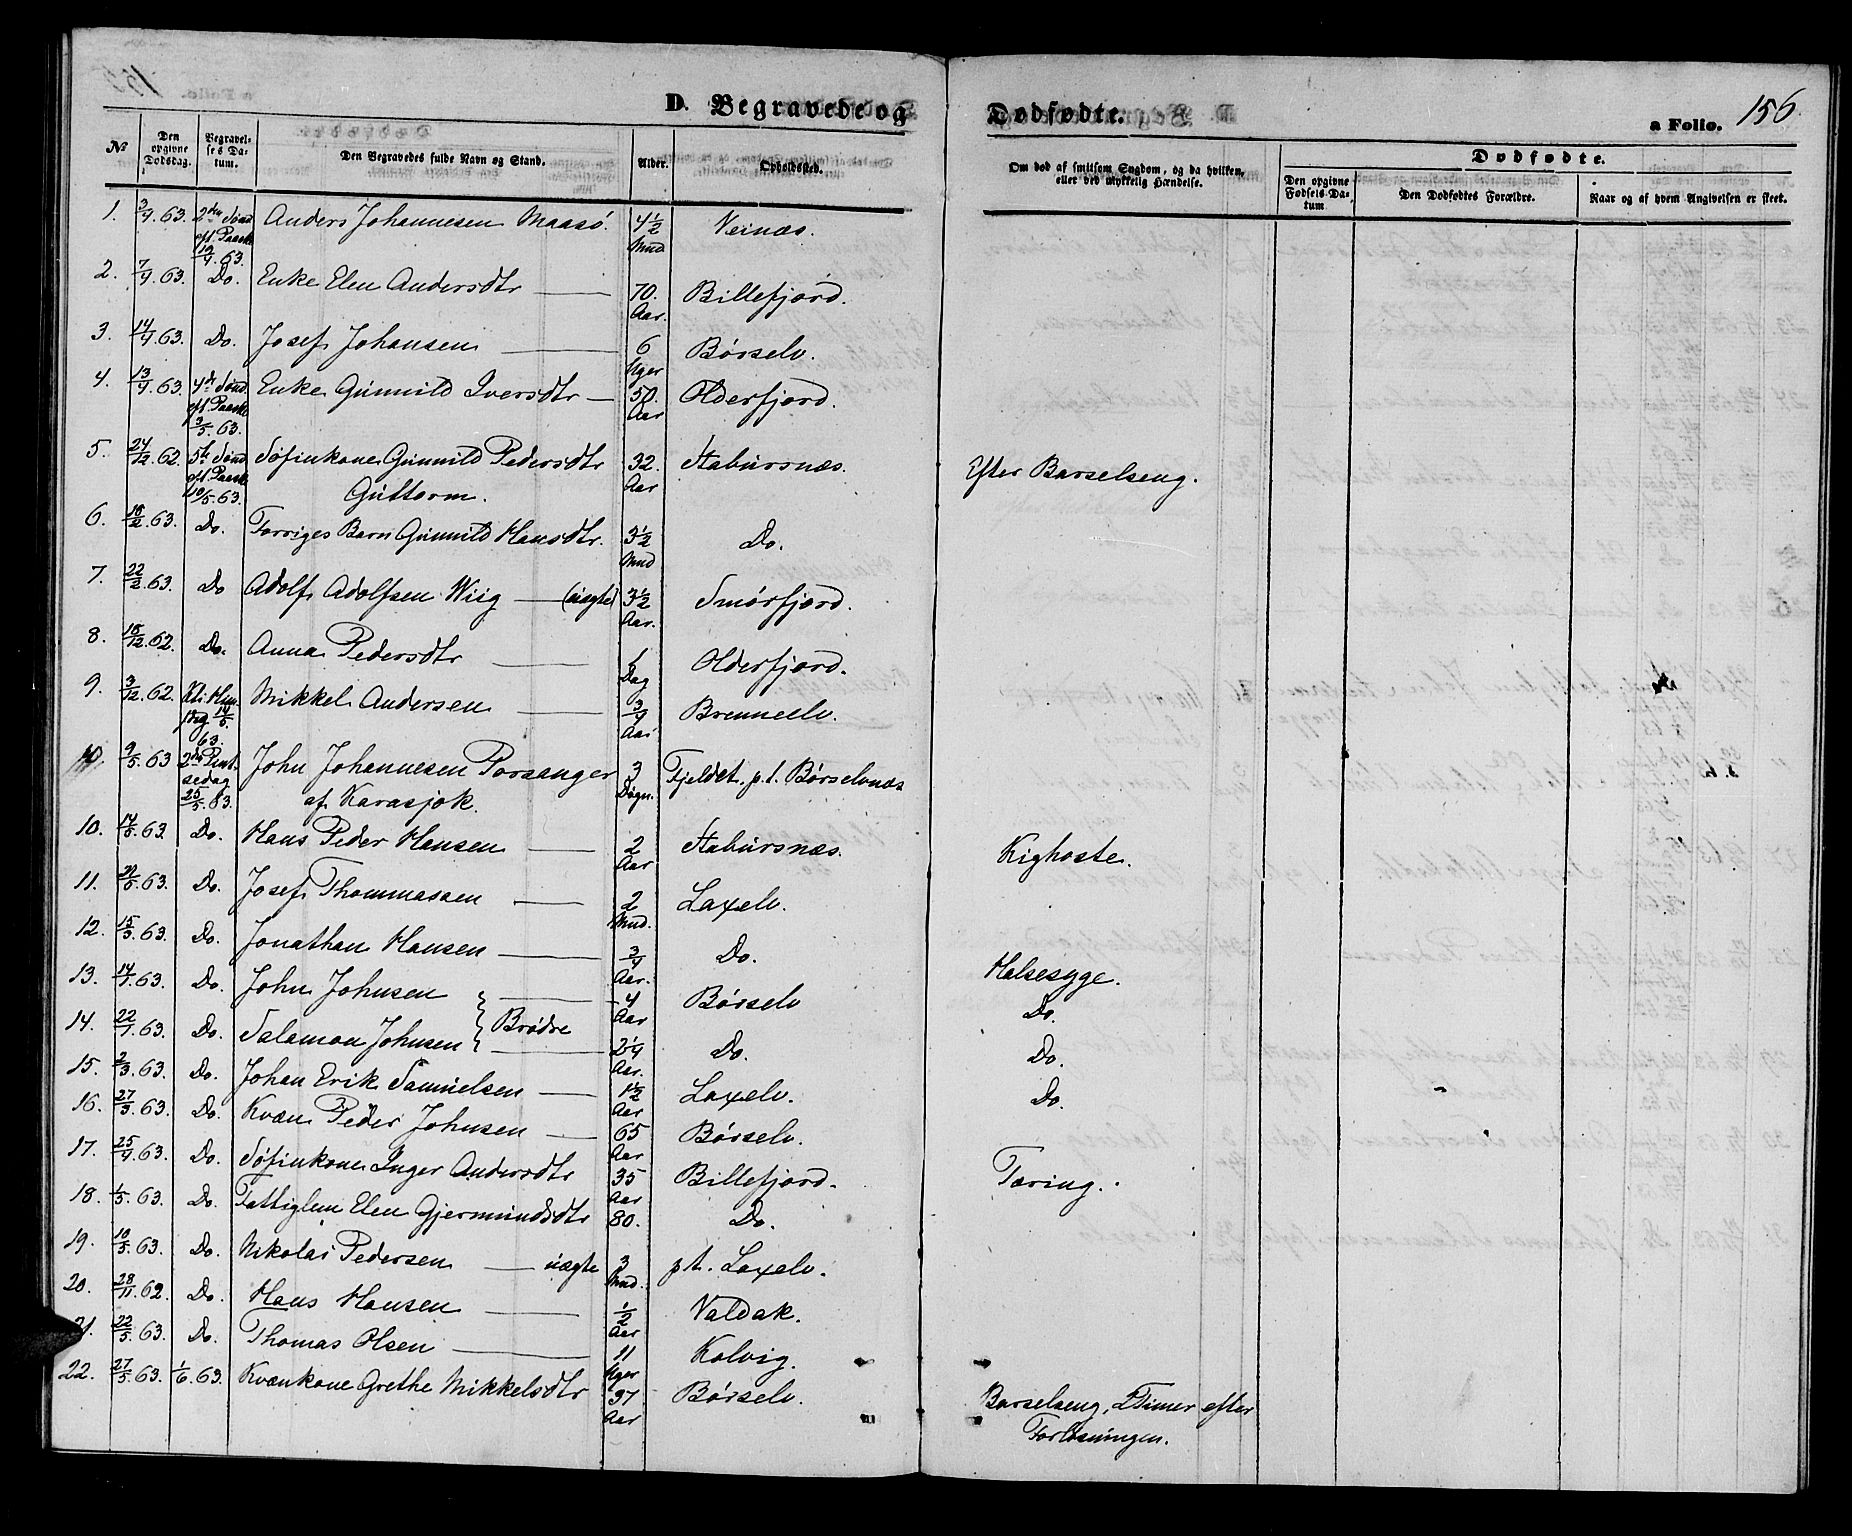 D. Begravede og Dødfødte.
a Folio. 156
№ Den opgivne Dødsdag. Begravelses Datum. Den Begravedes fulde Navn og Stand. Alder. Opholdssted. Om død af smitsom Sygdom, og da hvilken, eller ved ulykkelig Hændelse. Dødfødte.
Den opgivne Fødsels-Datum Den Dødfødtes Forældre. Naar og af hvem Angivelsen er skeet.
1. 3/4. 63. 2den Sønd. eft. Paaske 19/4. 63. Anders Johannesen Maasø. 4 1/2 Mnd Veinæs.
2. 7/4. 63. Do. Enke Elen Andersdtr 70. Aar. Billefjord.
3. 14/4 63. Do. Josef Johansen 6 Uger Børselv.
4. 13/4 63. 4de Sønd. eft. Paaske 3/5. 63. Enke Gunnild Iversdtr 50. Aar Olderfjord.
5. 24/12 62. 5te Sønd eft. Paaske 10/5. 63. Søfinkone Gunnild Pedersdtr Guttorm. 32. Aar Staburs­næs. Efter Barselseng.
6. 18/2 63. Do. Forriges Barn Gunnild Hansdtr. 3 1/2 Mnd Do.
7. 22/2 63. Do Adolf Adolfsen Wiig (uægte) 3 1/2 Aar. Smørfjord.
8. 18/12. 62. Do. Anna Pedersdtr 1 Dag Olderfjord.
9. 3/12. 62. Kr. Himfdag 14/5. 63. Mikkel Andersen 3/4 Aar Brennelv.
10. 9/5. 63 2den Pintsedag 25/5. 63. John Johannesen Porsanger af Karasjok. 3 Døgn. Fjeldet, p. t. Børselvnæs
10. 14/5 63. Do. Hans Peder Hansen 2 Aar Stabursnæs. Kighoste.
11. 63. Do. Josef Thommassen 2 Mnd. Laxelv.
12. 15/3. 63. Do. Jonathan Hansen 3/4 Aar. Do. Halsesyge.
13. 63. Do. John Johnsen } Brødre 4 Aar Børselv Do.
14. 63. Do. Salamon Johnsen 2 1/4 Aar. Do. Do.
15. 2/3 63. Do. Johan Erik Samuelsen 1 1/2 Aar Laxelv. Do.
16. 27/3 63. Do. Kvæn Peder Johnsen 65 Aar Børselv.
17. 25/4 63. Do. Søfinkone Inger Andersdtr 35 Aar Billefjord. Tæring.
18. 1/5. 63. Do. Fattiglem Elen Gjermundsdtr 80. Do.
19. 10/5 63. Do. Nikolai Pedersen uægte 3 Mnd. p t. Laxelv.
20. 28/11. 62. Do. Hans Hansen 1/2 Aar Valdak.
21. 22/5. 63. Do. Thomas Olsen 11 Uger Kolvig.
22. 27/5 63. 1/6. 63. Kvænkone Grethe Mikkelsdtr 37 Aar Børselv. Barselseng, 2 Timer efter Forløsningen.